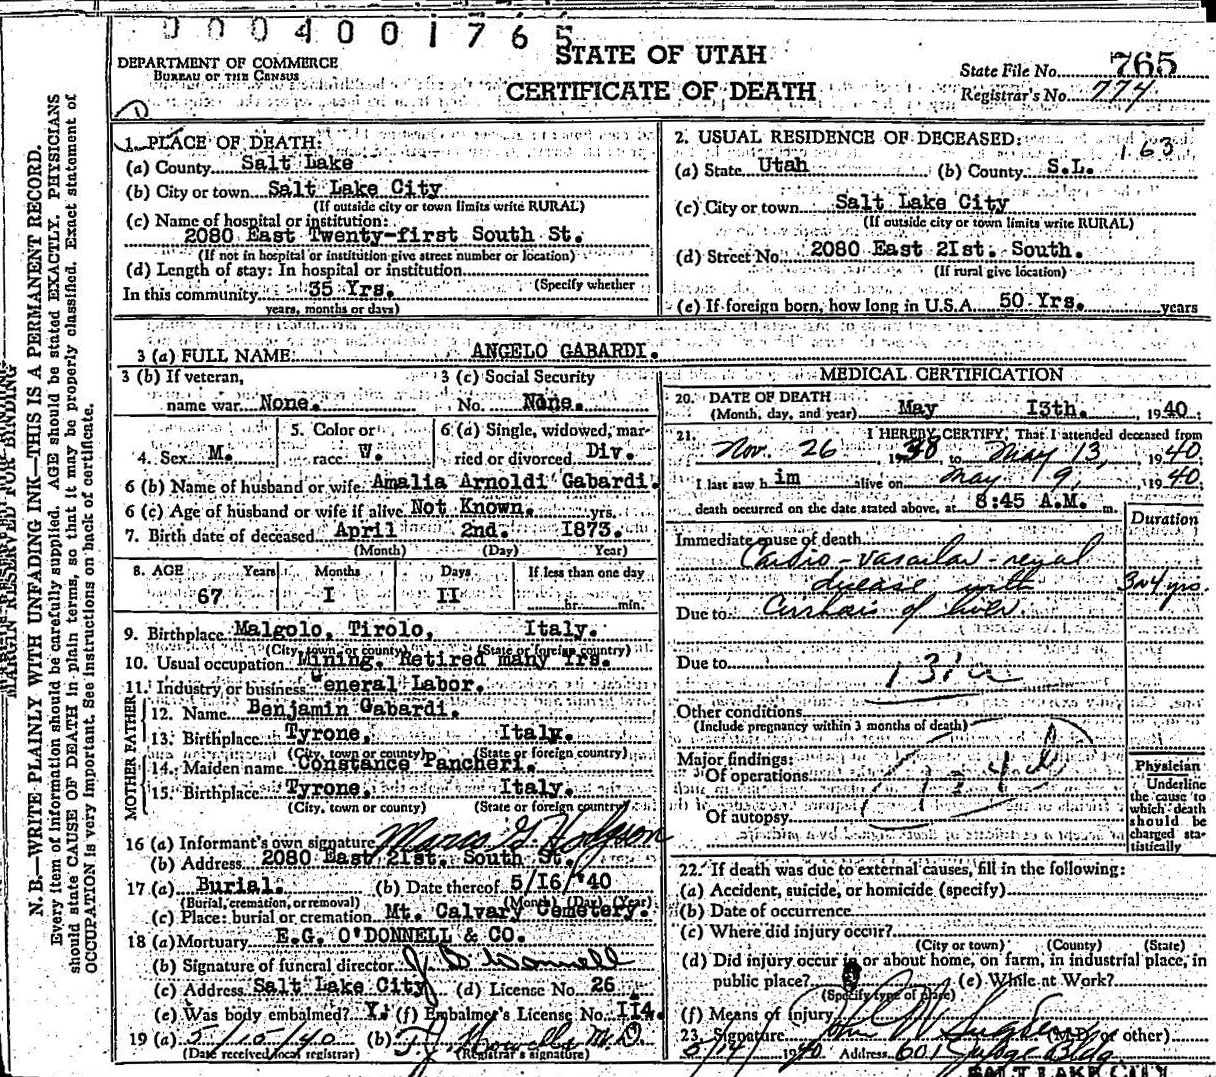 0 0 0 4 0 0 1 7 6 5
DEPARTMENT OF COMMERCE
BUREAU OF THE CENSUS
STATE OF UTAH
CERTIFICATE OF DEATH
State File No. 765
Registrar's No. 774
1. PLACE OF DEATH:
(a) County Salt Lake
(b) City or town Salt Lake City
(If outside city or town limits write RURAL)
(c) Name of hospital or institution:
2080 East Twenty-first South St.
(If not in hospital or institution give street number or location)
(d) Length of stay: In hospital or institution
(Specify whether
In this community 35 Yrs.
years, months or days)
2. USUAL RESIDENCE OF DECEASED:
1 63
(a) State Utah (b) County S.L.
(c) City or town Salt Lake City
(If outside city or town limits write RURAL)
(d) Street No. 2080 East 2Ist. South.
(If rural give location)
(e) If foreign born, how long in U.S.A. 50 Yrs. years
3 (a) FULL NAME: ANGELO GABARDI.
3 (b) If veteran,
name war None.
3 (c) Social Security
No. None.
4. Sex M.
5. Color or
race W.
6 (a) Single, widowed, mar-
ried or divorced Div.
6 (b) Name of husband or wife Amalia Arnoldi Gabardi.
6 (c) Age of husband or wife if alive Not Known. yrs.
7. Birth date of deceased April 2nd. I873.
(Month) (Day) (Year)
8. AGE Years Months Days If less than one day
67 I II hr. min.
9. Birthplace Malgolo, Tirolo, Italy.
(City, town, or county) (State or foreign country)
10. Usual occupation Mining. Retired many Yrs.
11. Industry or business General Labor.
FATHER
12. Name Benjamin Gabardi.
13. Birthplace Tyrone, Italy.
(City, town or county) (State or foreign country)
MOTHER
14. Maiden name Constance Pancheri.
15. Birthplace Tyrone, Italy.
(City, town or county) (State or foreign country)
16 (a) Informant's own signature
(b) Address 2080 East 21st. South St.
17 (a) Burial. (b) Date thereof 5/I6/'40
(Burial, cremation, or removal) (Month) (Day) (Year)
(c) Place: burial or cremation Mt. Calvary Cemetery.
18 (a) Mortuary E.G. O'DONNELL & CO.
(b) Signature of funeral director
(c) Address Salt Lake City (d) License No. 26
(e) Was body embalmed? Y. (f) Embalmer's License No. II4.
19 (a) 5/15/40 (b) M.D.
(Date received local registrar) (Registrar's signature)
MEDICAL CERTIFICATION
20. DATE OF DEATH
(Month, day, and year) May I3th. , 1940.
21. I HEREBY CERTIFY, That I attended deceased from
Nov. 26 , 1938 to May 13, 1940.
I last saw him alive on May 9, 1940.
death occurred on the date stated above, at 8:45 A.M. m.
Duration
Immediate cause of death
Cardio-vascular-renal
disease with
3 or 4 yrs.
Due to Cirrhosis of liver
Due to
131a
Other conditions
(Include pregnancy within 3 months of death)
Major findings:
Of operations
124b
Of autopsy
Physician
Underline
the cause to
which death
should be
charged sta-
tistically
22. If death was due to external causes, fill in the following:
(a) Accident, suicide, or homicide (specify)
(b) Date of occurrence
(c) Where did injury occur?
(City or town) (County) (State)
(d) Did injury occur in or about home, on farm, in industrial place, in
public place? (e) While at Work?
(Specify type of place)
(f) Means of injury
23. Signature John W. (M.D. or other)
5/14/ 1940 Address 601 Judge Bldg
SALT LAKE CITY
MARGIN RESERVED FOR BINDING
N. B.—WRITE PLAINLY WITH UNFADING INK—THIS IS A PERMANENT RECORD.
Every item of information should be carefully supplied. AGE should be stated EXACTLY. PHYSICIANS
should state CAUSE OF DEATH in plain terms, so that it may be properly classified. Exact statement of
OCCUPATION is very important. See instructions on back of certificate.